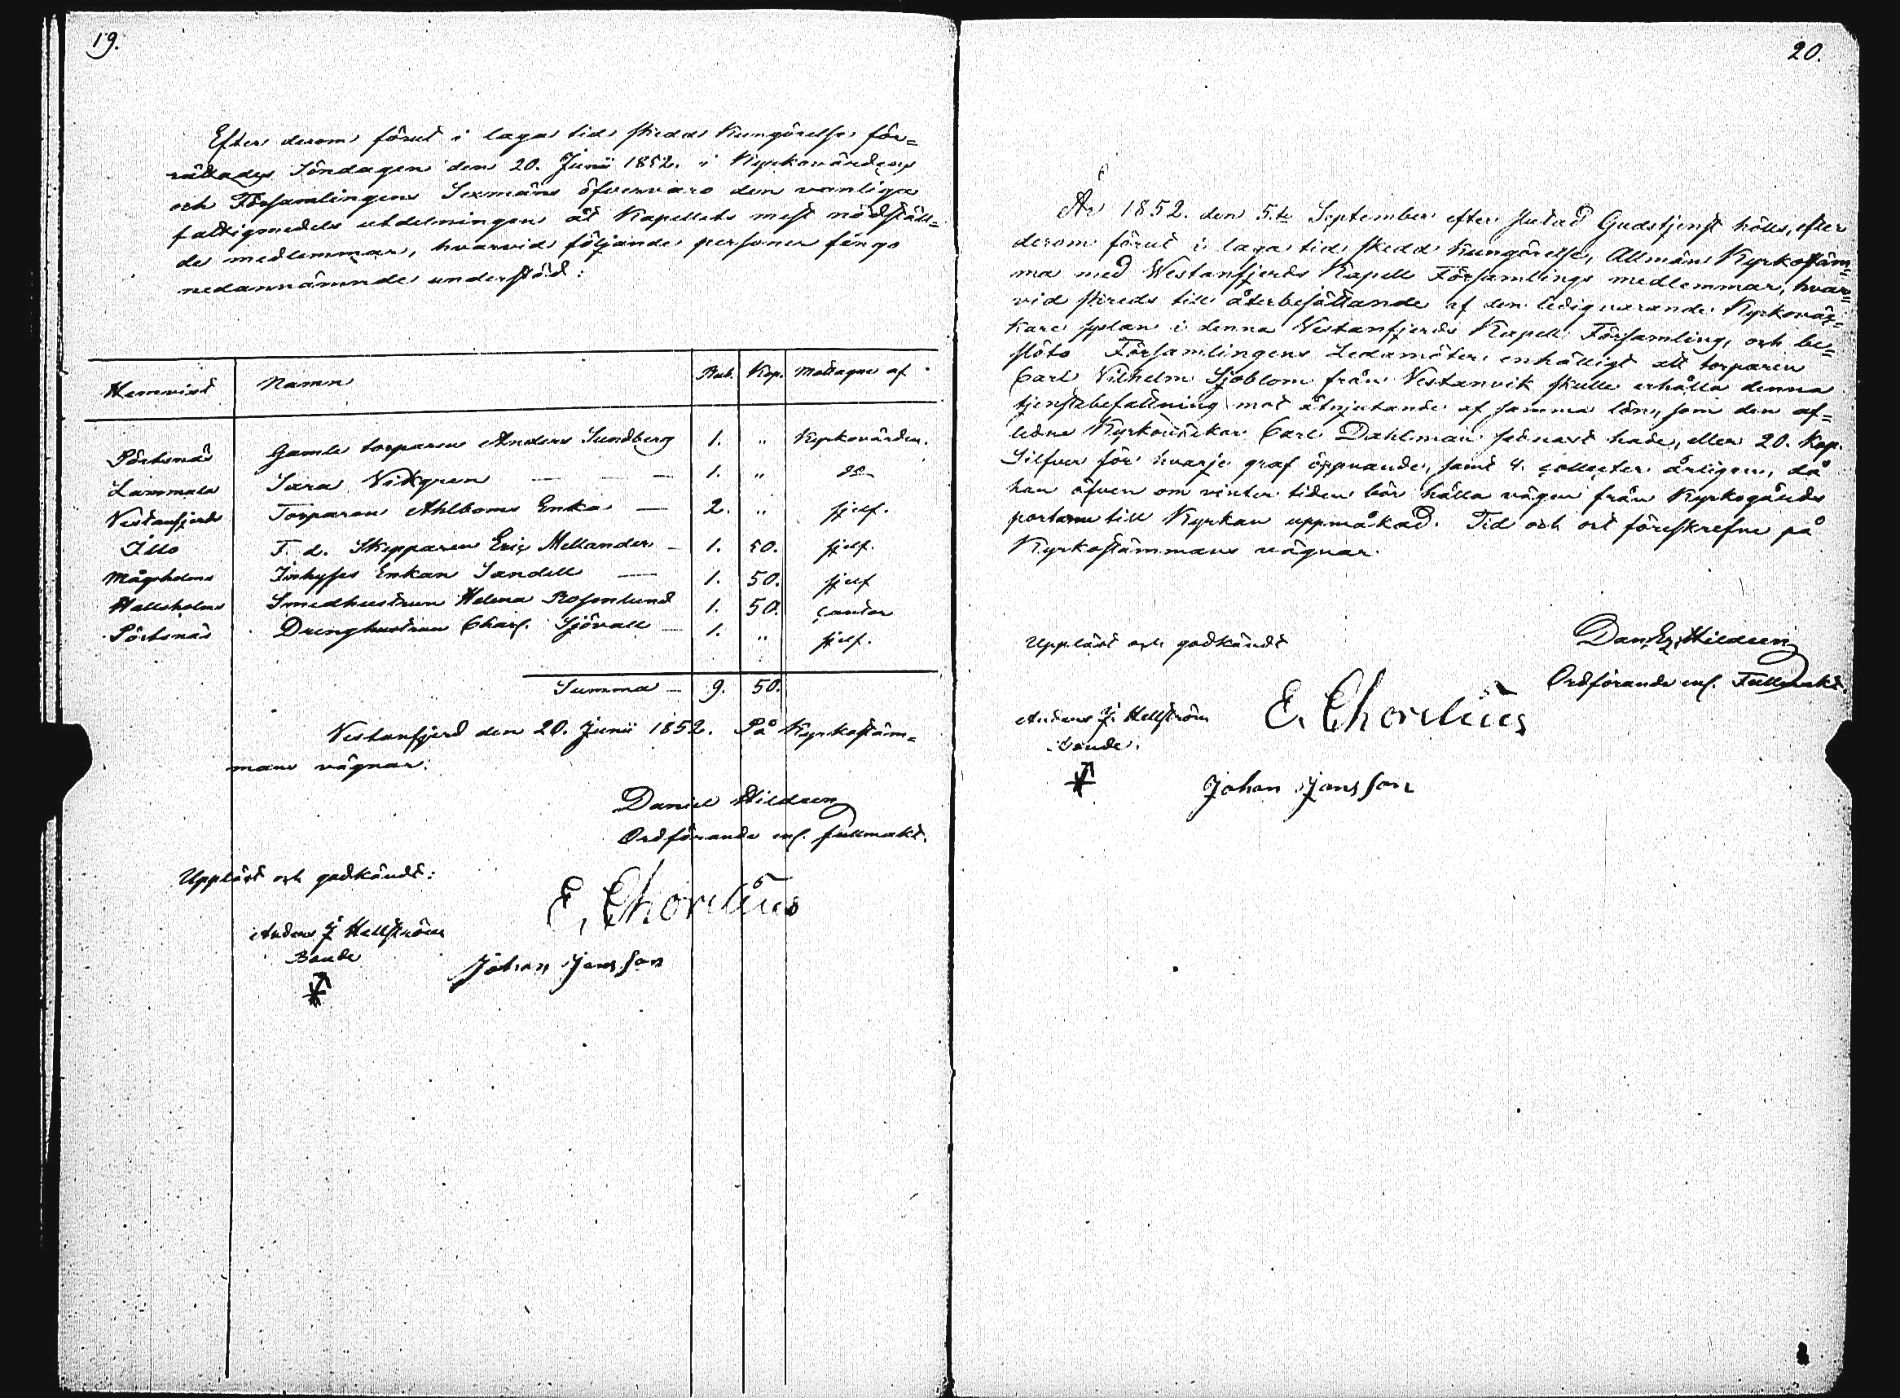 19.
Efter derom förut i laga tid skedd Kungörelse för=
rättades Söndagen den 20. Junii 1852. i Kyrkovärdens
och Församlingens Sexmäns öfvervaro den vanliga
fattigmedels utdelningen åt Kapellets mest nödställ=
de medlemmar, hvarvid följande personer fingo
nedannämnde understöd:
Hemvist Namn Rub. Kop. Mottagne af
Pörtsnäs Gamle torparen Anders Sundberg 1. " Kyrkovärden.
Lammala Sara Vikgren — — 1. " do
Vestanfjerd Torparen Ahlboms Enka — 2. " sjelf.
Illo F. d. Skepparen Eric Mellander — 1. 50. sjelf.
Mågsholm Inhyses Enkan Sandell — 1. 50. sjelf
Hallsholm Smedhustrun Helena Rosenlund 1. 50. Cantor
Pörtsnäs Drenghustrun Charl. Sjövall — 1. " sjelf.
Summa — 9. 50.
Vestanfjerd den 20. Junii 1852. På Kyrkostäm=
mans vägnar:
Daniel Hildeen
Ordförande enl. fullmakt.
Uppläst och godkändt:
E. Chorelius
Anders J Hellström
Bonde
Johan Jansson
20.
År 1852. den 5.te September efter slutad Gudstjenst hölls, efter
derom förut i laga tid skedd Kungörelse, Allmän Kyrkostäm=
ma med Westanfjerds Kapell Församlings medlemmar, hvar=
vid skreds till återbesättande af den ledigvarande Kyrkoväk=
tare sysslan i denna Vestanfjerds Kapell Församling, och be=
slöto Församlingens Ledamöter enhälligt att torparen
Carl Vilhelm Sjöblom från Vestanvik skulle erhålla denna
tjenstebefattning mot åtnjutande af samma lön, som den af=
lidne Kyrkoväktar Carl Dahlman sednast hade, eller 20. kop.
Silfver för hvarje graf öppnande, samt 4. collecter årligen, då
han äfven om vinter tiden bör hålla vägen från Kyrkogårds
portarne till Kyrkan uppmåkad. Tid och ort föreskrefne på
Kyrkostämmans vägnar.
Dan. Hildeen
Ordförande enl. Fullmakt.
Uppläst och godkändt
E. Chorelius
Anders J. Hellström
Bonde.
Johan Jansson